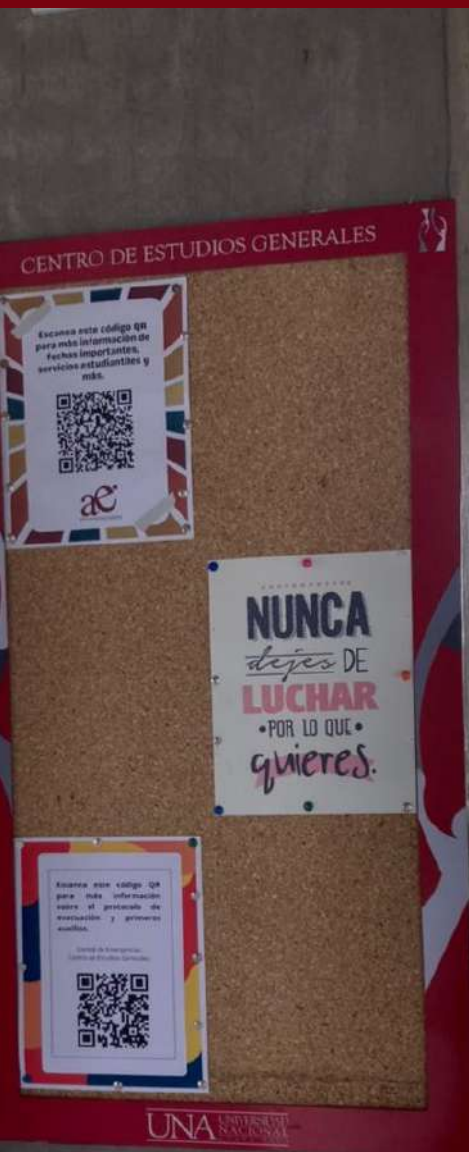 CENTRO DE ESTUDIOS GENERALES
Escanea este código QR
para más información de
fechas importantes,
servicios estudiantiles y
más.
ae
NUNCA
dejes DE
LUCHAR
•POR LO QUE•
quieres.
Escanea este código QR
para más información
sobre el protocolo de
evacuación y primeros
auxilios.
Comité de Emergencias
Centro de Estudios Generales
UNA UNIVERSIDAD
NACIONAL